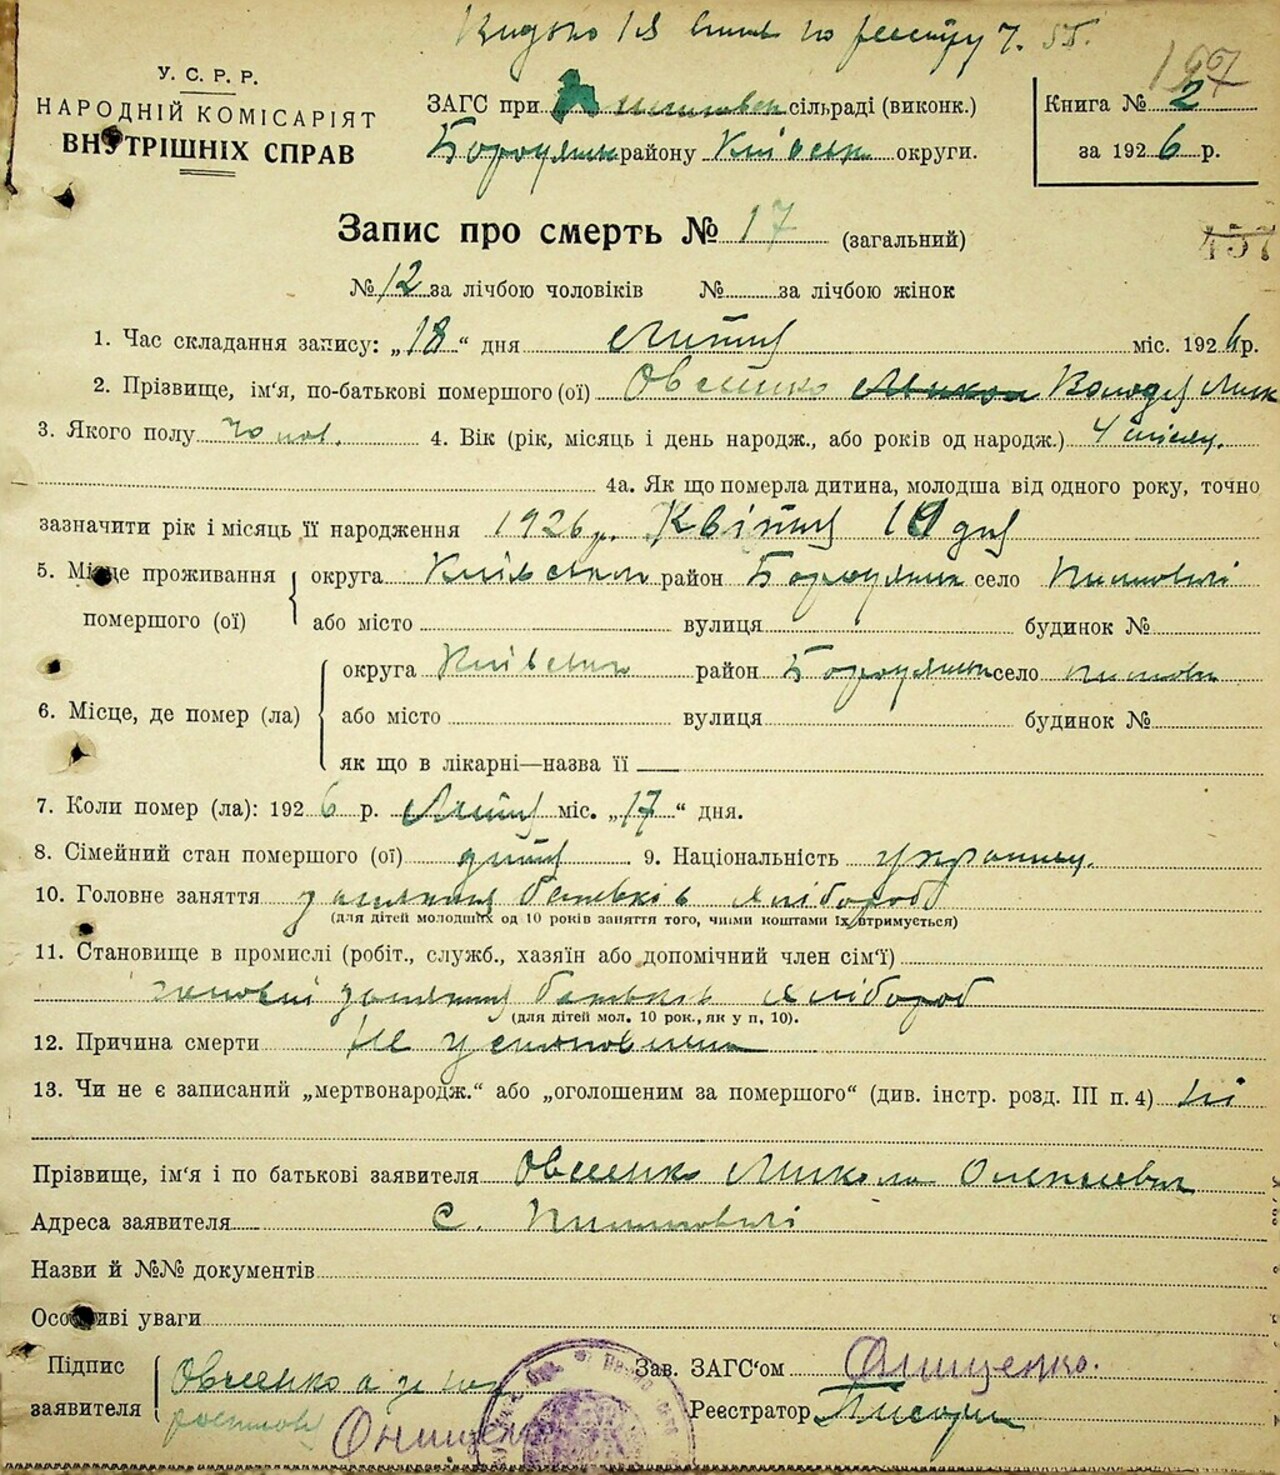 Видано на
У. С. Р. Р.
НАРОДНІЙ КОМІСАРІЯТ
ВНУТРІШНІХ СПРАВ
ЗАГС при сільраді (виконк.)
Бородянськ району Київськ округи.
197
Книга № 2
за 1926 р.
Запис про смерть № 17 (загальний)
457
№ 12 за лічбою чоловіків № за лічбою жінок
1. Час складання запису: „18“ дня Липня міс. 1926 р.
2. Прізвище, ім'я, по-батькові помершого (ої) Овсєнко Микола Володя Мик
3. Якого полу чолов. 4. Вік (рік, місяць і день народж., або років од народж.) 4 місяц.
4а. Як що померла дитина, молодша від одного року, точно
зазначити рік і місяць її народження 1926 р. Квітня 19 дня
5. Місце проживання помершого (ої) округа Київська район Бородянськ село
або місто вулиця будинок №
6. Місце, де помер (ла) округа Київська район Бородянськ село
або місто вулиця будинок №
як що в лікарні—назва її
7. Коли помер (ла): 1926 р. Липня міс. „17“ дня.
8. Сімейний стан помершого (ої) дитя 9. Національність українец.
10. Головне заняття заняття батьків хлібороб
(для дітей молодших од 10 років заняття того, чиїми коштами їх втримується)
11. Становище в промислі (робіт., служб., хазяїн або допомічний член сім'ї)
заняття батьків хлібороб
(для дітей мол. 10 рок., як у п. 10).
12. Причина смерти Не установлена
13. Чи не є записаний „мертвонародж.“ або „оголошеним за помершого“ (див. інстр. розд. III п. 4) ні
Прізвище, ім'я і по батькові заявителя Овсєнко Микола Олексієвич
Адреса заявителя с.
Назви й №№ документів
Особливі уваги
Підпис заявителя Овсєнко а за
Онищенко
Зав. ЗАГС'ом Онищенко.
Реестратор